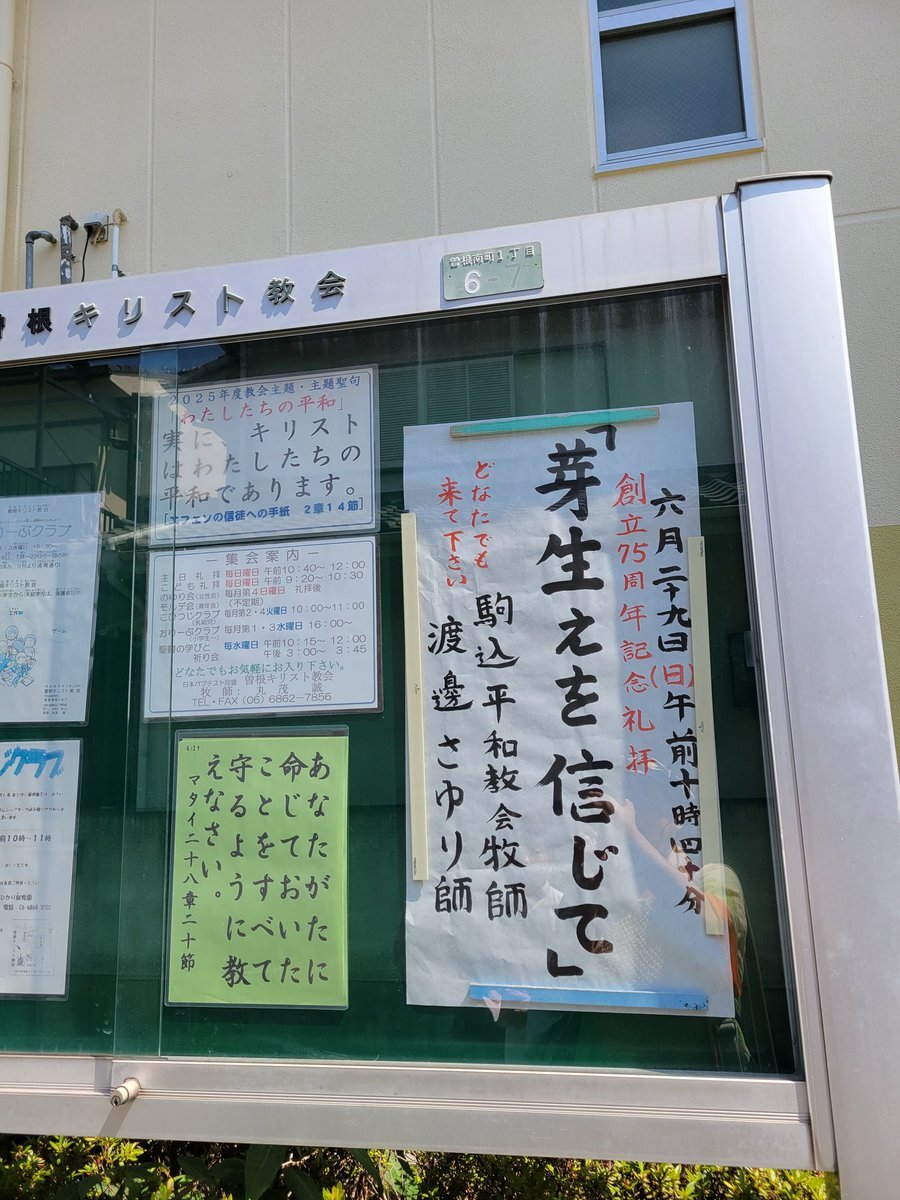 曽根キリスト教会
曽根南町1丁目
6-7
2025年度教会主題・主題聖句
「わたしたちの平和」
実に キリスト
はわたしたちの
平和であります。
[エフェソの信徒への手紙 2章14節]
－集会案内－
主日礼拝 毎日曜日 午前10:40～12:00
こども礼拝 毎日曜日 午前 9:20～10:30
のゆり会(女性会) 毎月第4日曜日 礼拝後
モルデ会(青年会) (不定期)
こひつじクラブ 毎月第2・4火曜日 10:00～11:00
(乳幼児)
おりーぶクラブ 毎月第1・3水曜日 16:00～
(小学生～)
聖書の学びと 毎水曜日 午前10:15～12:00
祈り会 午後 3:00～ 3:45
どなたでもお気軽にお入り下さい。
日本バプテスト同盟 曽根キリスト教会
牧師: 丸茂 誠
TEL・FAX (06) 6862-7856
六月二十九日(日)午前十時四十分
創立75周年記念礼拝
「芽生えを信じて」
駒込平和教会牧師
渡邊さゆり師
どなたでも
来て下さい
6/29
あなたがたに
命じておいた
ことをすべて
守るように教
えなさい。
マタイ二十八章二十節
曽根キリスト教会
りーぶクラブ
ゲーム
クラブ
前10時～11時